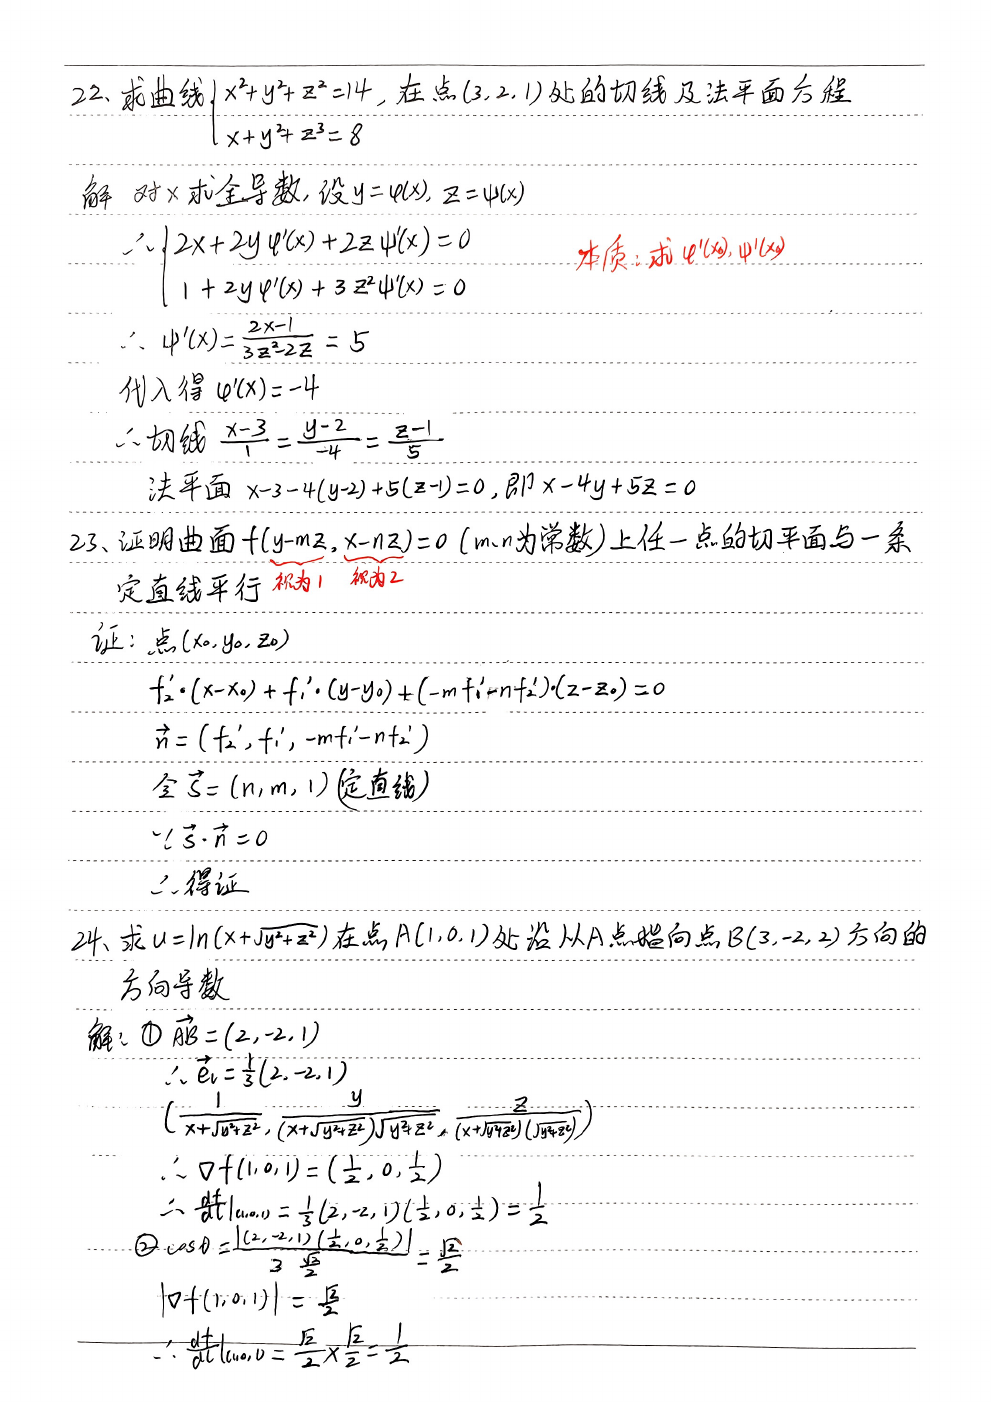 22、求曲线{x²+y²+z²=14, 在点(3,2,1)处的切线及法平面方程
x+y²+z³=8
解 对x求全导数,设y=φ(x), z=ψ(x)
∴{2x+2yφ'(x)+2zψ'(x)=0
1+2yφ'(x)+3z²ψ'(x)=0
本质:求φ'(x₀),ψ'(x₀)
∴ ψ'(x)=(2x-1)/(3z²-2z)=5
代入得φ'(x)=-4
∴切线 (x-3)/1=(y-2)/-4=(z-1)/5
法平面 x-3-4(y-2)+5(z-1)=0,即x-4y+5z=0
23、证明曲面f(y-mz, x-nz)=0 (m、n为常数)上任一点的切平面与一条
视为1 视为2
定直线平行
证:点(x₀,y₀,z₀)
f₂'·(x-x₀)+f₁'·(y-y₀)+(-mf₁'-nf₂')·(z-z₀)=0
n⃗=(f₂',f₁',-mf₁'-nf₂')
令s⃗=(n,m,1)(定直线)
∵s⃗·n⃗=0
∴得证
24、求u=ln(x+√(y²+z²))在点A(1,0,1)处沿从A点指向点B(3,-2,2)方向的
方向导数
解:① AB⃗=(2,-2,1)
∴e⃗ₗ=1/3(2,-2,1)
(1/(x+√(y²+z²)), y/((x+√(y²+z²))√(y²+z²)), z/((x+√(y²+z²))(√(y²+z²))))
∴▽f(1,0,1)=(1/2,0,1/2)
∴df/dl|(1,0,1)=1/3(2,-2,1)(1/2,0,1/2)=1/2
② cosθ=|(2,-2,1)(1/2,0,1/2)|/(3 √2/2)=√2/2
|▽f(1,0,1)|=√2/2
∴df/dl|(1,0,1)=√2/2×√2/2=1/2